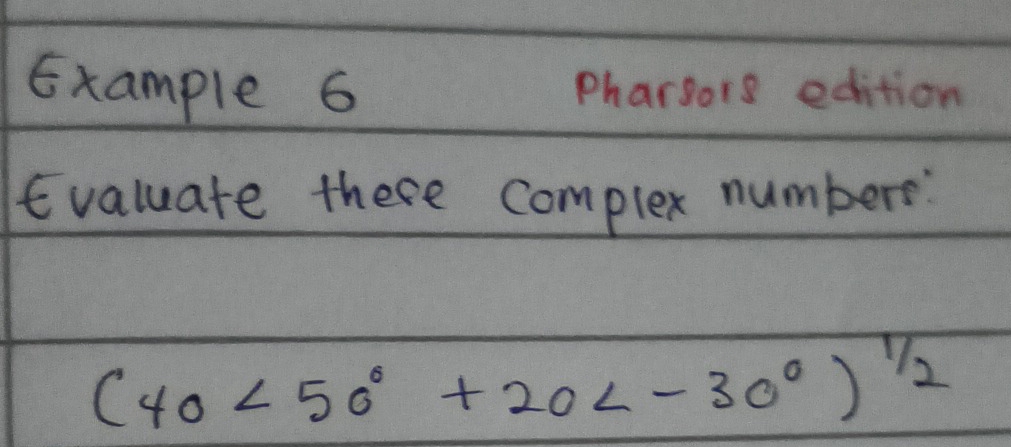 Example 6 Pharsors edition
Evaluate these complex numbers:
(40 < 50° + 20 < - 30°) 1/2